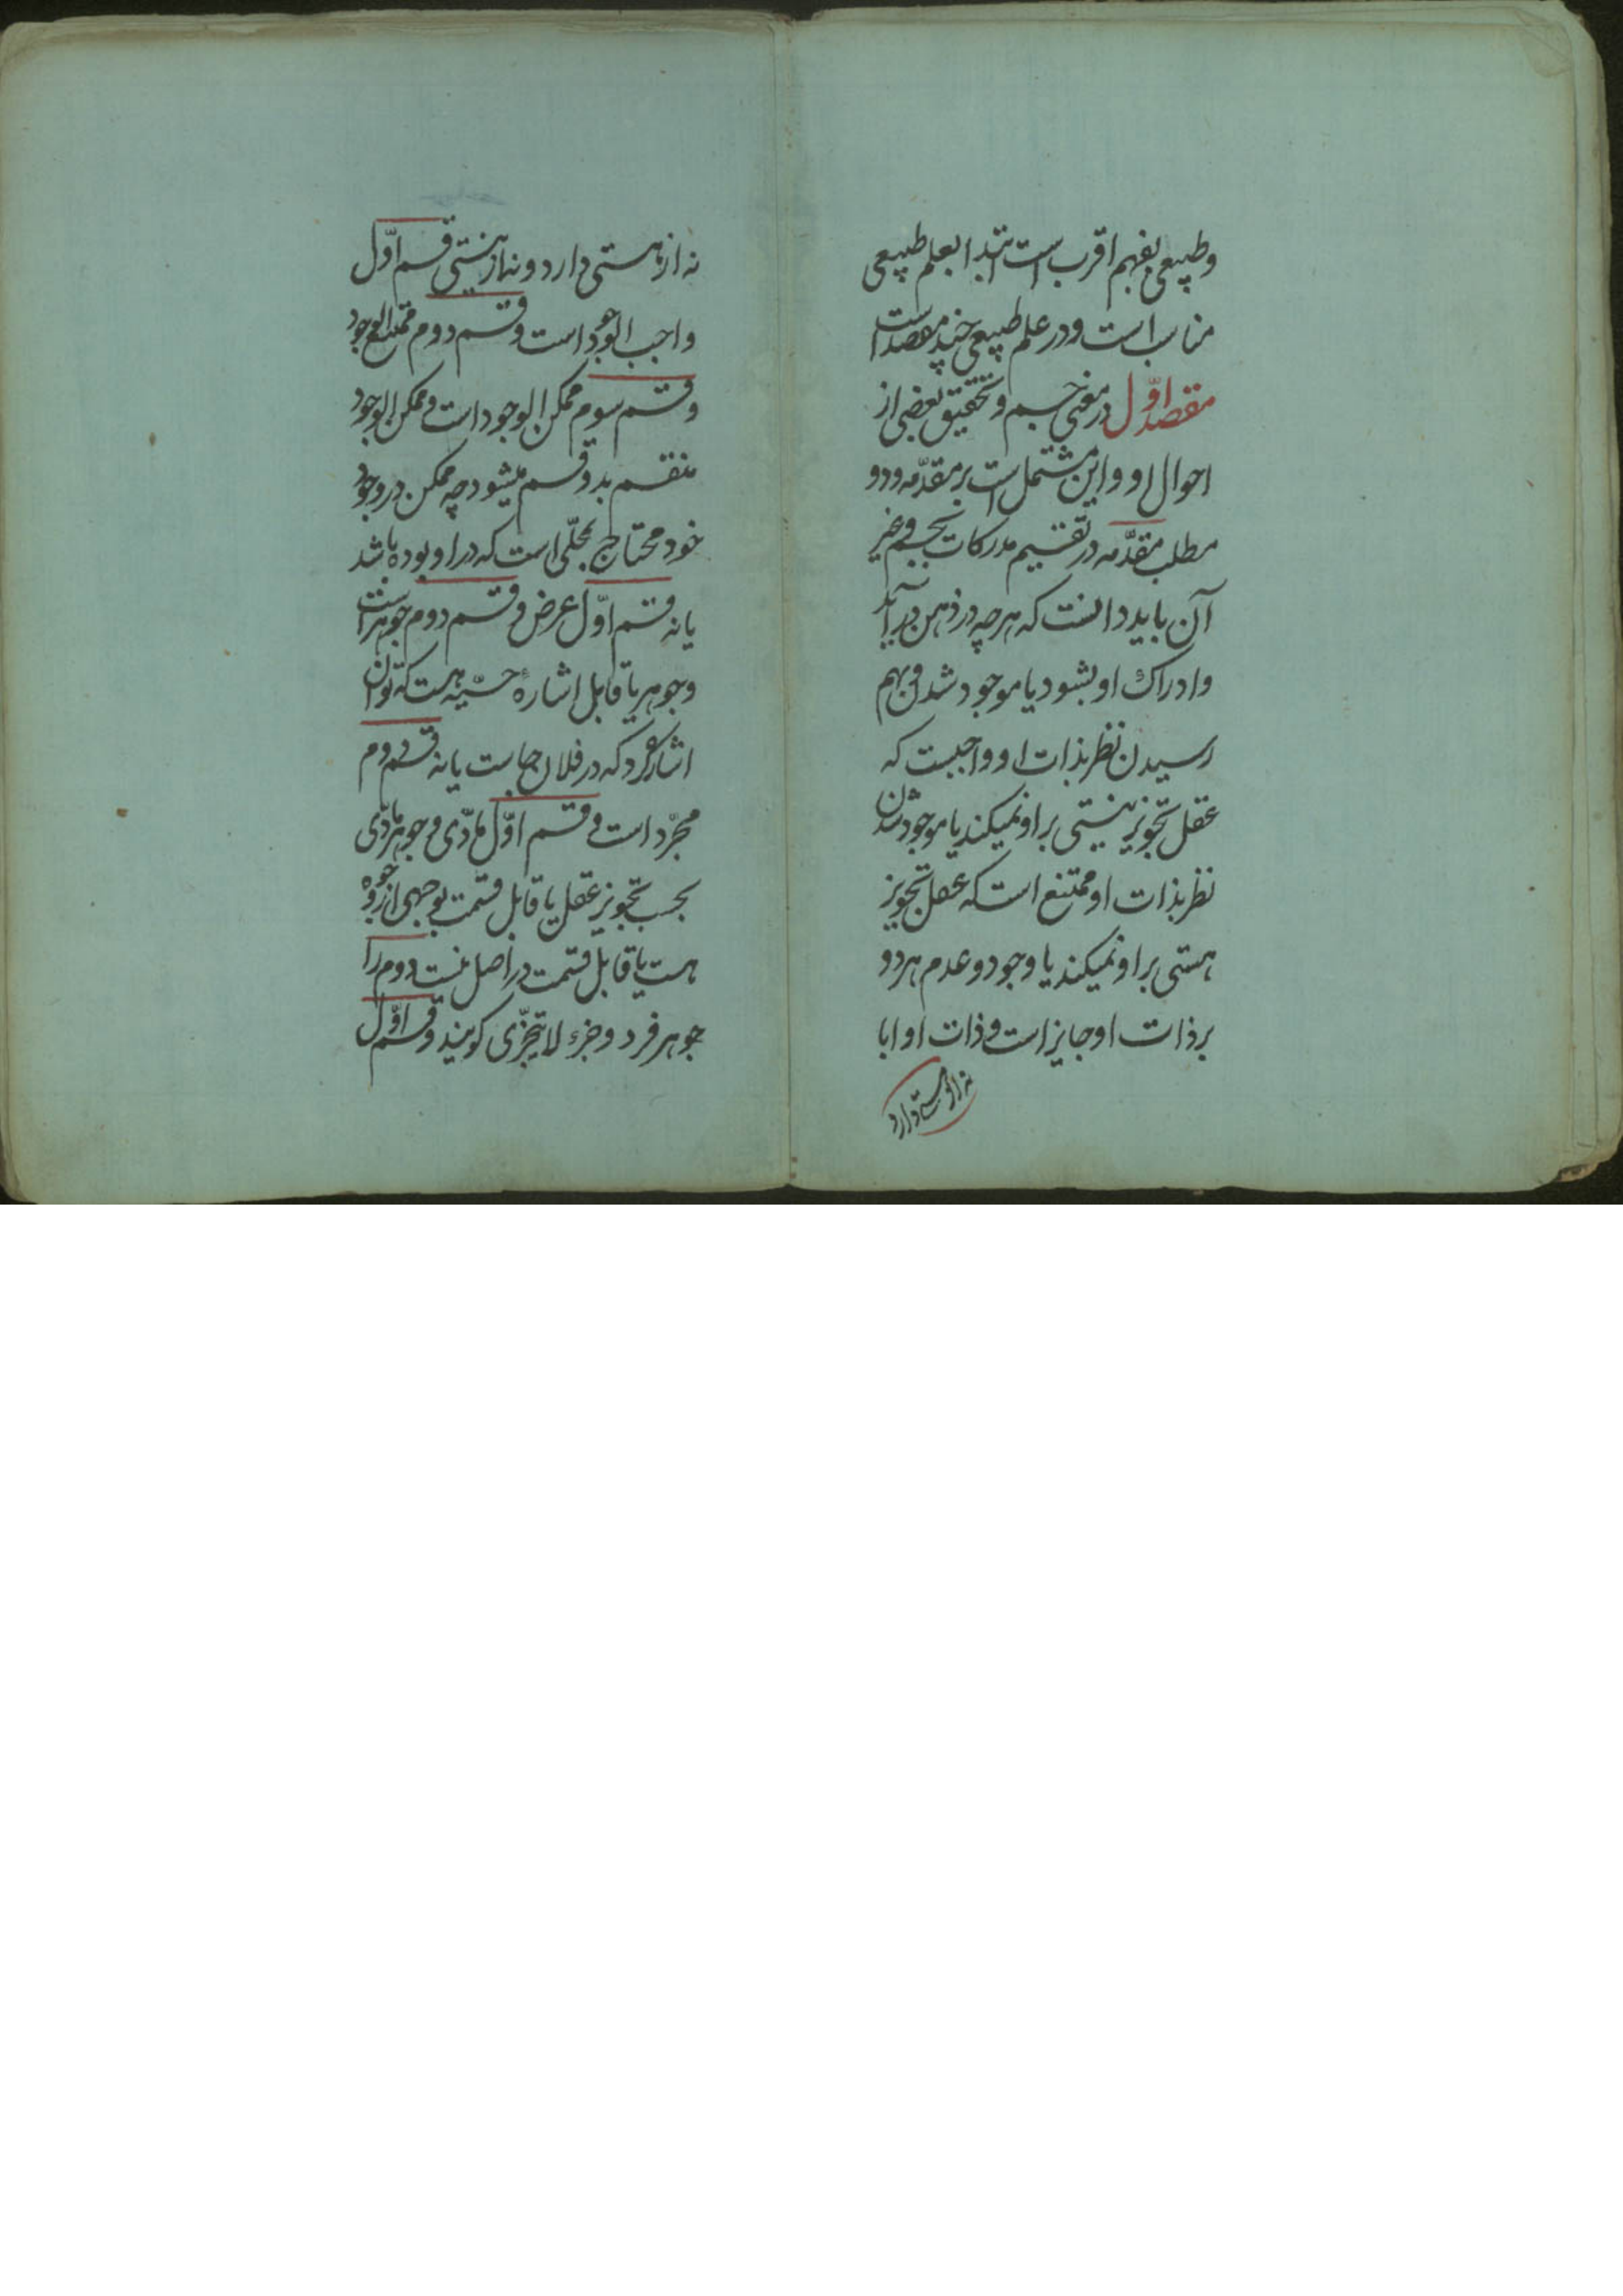 و طبیعی بفهم اقرب است ابتدا بعلم طبیعی
مناسب است و در علم طبیعی چند مقصد است
مقصد اوّل در معنی جسم و تحقیق بعضی از
احوال او و این مشتمل است بر مقدّمه و دو
مطلب مقدّمه در تقسیم مدرکات بجسم و غیر
آن باید دانست که هرچه در ذهن درآید
و ادراک او بشود یا موجود شدن و بهم
رسیدن نظر بذات او واجبست که
عقل تجویز نیستی بر او نمیکند یا موجود شدن
نظر بذات او ممتنع است که عقل تجویز
هستی بر او نمیکند یا وجود و عدم هر دو
بر ذات او جایز است و ذات او ابا
نه از هستی دارد
نه از هستی دارد و نه از نیستی قسم اوّل
واجب الوجود است و قسم دوم ممتنع الوجود
و قسم سوم ممکن الوجود است و ممکن الوجود
منقسم بدو قسم میشود چه ممکن در وجود
خود محتاج بمحلّی است که در او بوده باشد
یا نه قسم اوّل عرض و قسم دوم جوهر است
و جوهر یا قابل اشارهٔ حسّیه هست که توان
اشاره کرد که در فلان جاست یا نه قسم دوم
مجرّد است و قسم اوّل مادّی و جوهر مادّی
بحسب تجویز عقل یا قابل قسمت بوجهی از وجوه
هست یا قابل قسمت در اصل نیست دوم را
جوهر فرد و جزء لا یتجزّی گویند و قسم اوّل